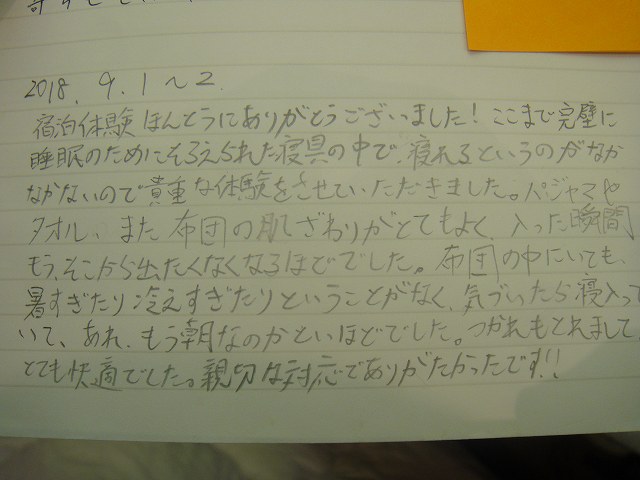 2018. 9. 1 〜 2.
宿泊体験ほんとうにありがとうございました！ここまで完璧に
睡眠のためにそろえられた寝具の中で、寝れるというのがなか
なかないので貴重な体験をさせていただきました。パジャマや
タオル、また布団の肌ざわりがとてもよく、入った瞬間
もう、そこから出たくなくなるほどでした。布団の中にいても、
暑すぎたり冷えすぎたりということがなく、気づいたら寝入って
いて、あれ、もう朝なのかといほどでした。つかれもとれまして、
とても快適でした。親切な対応でありがたかったです!!